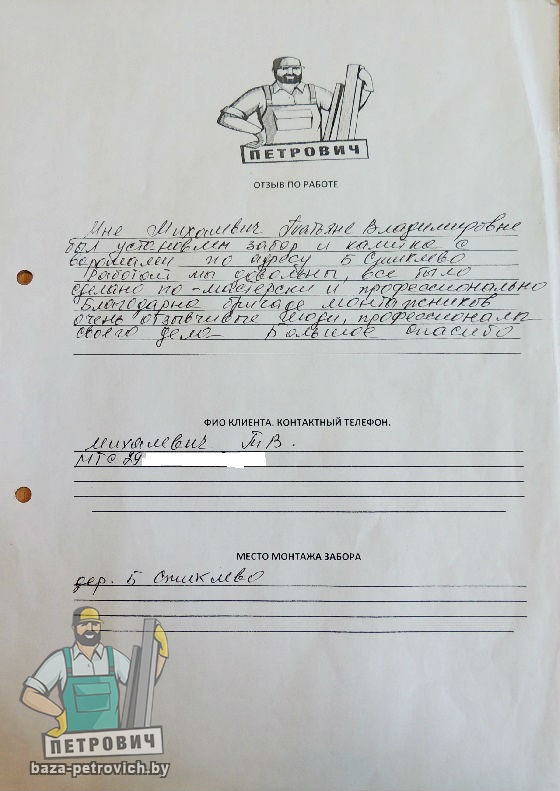 ПЕТРОВИЧ
ОТЗЫВ ПО РАБОТЕ
Мне Михалевич Татьяне Владимировне
был установлен забор и калитка с
воротами по адресу Б
Работой мы довольны, все было
сделано по-мастерски и профессионально
Благодарна бригаде монтажников
очень отзывчивые люди, профессионалы
своего дела Большое спасибо
ФИО КЛИЕНТА. КОНТАКТНЫЙ ТЕЛЕФОН.
Михалевич ТВ.
МТС 29
МЕСТО МОНТАЖА ЗАБОРА
дер. Б
ПЕТРОВИЧ
baza-petrovich.by